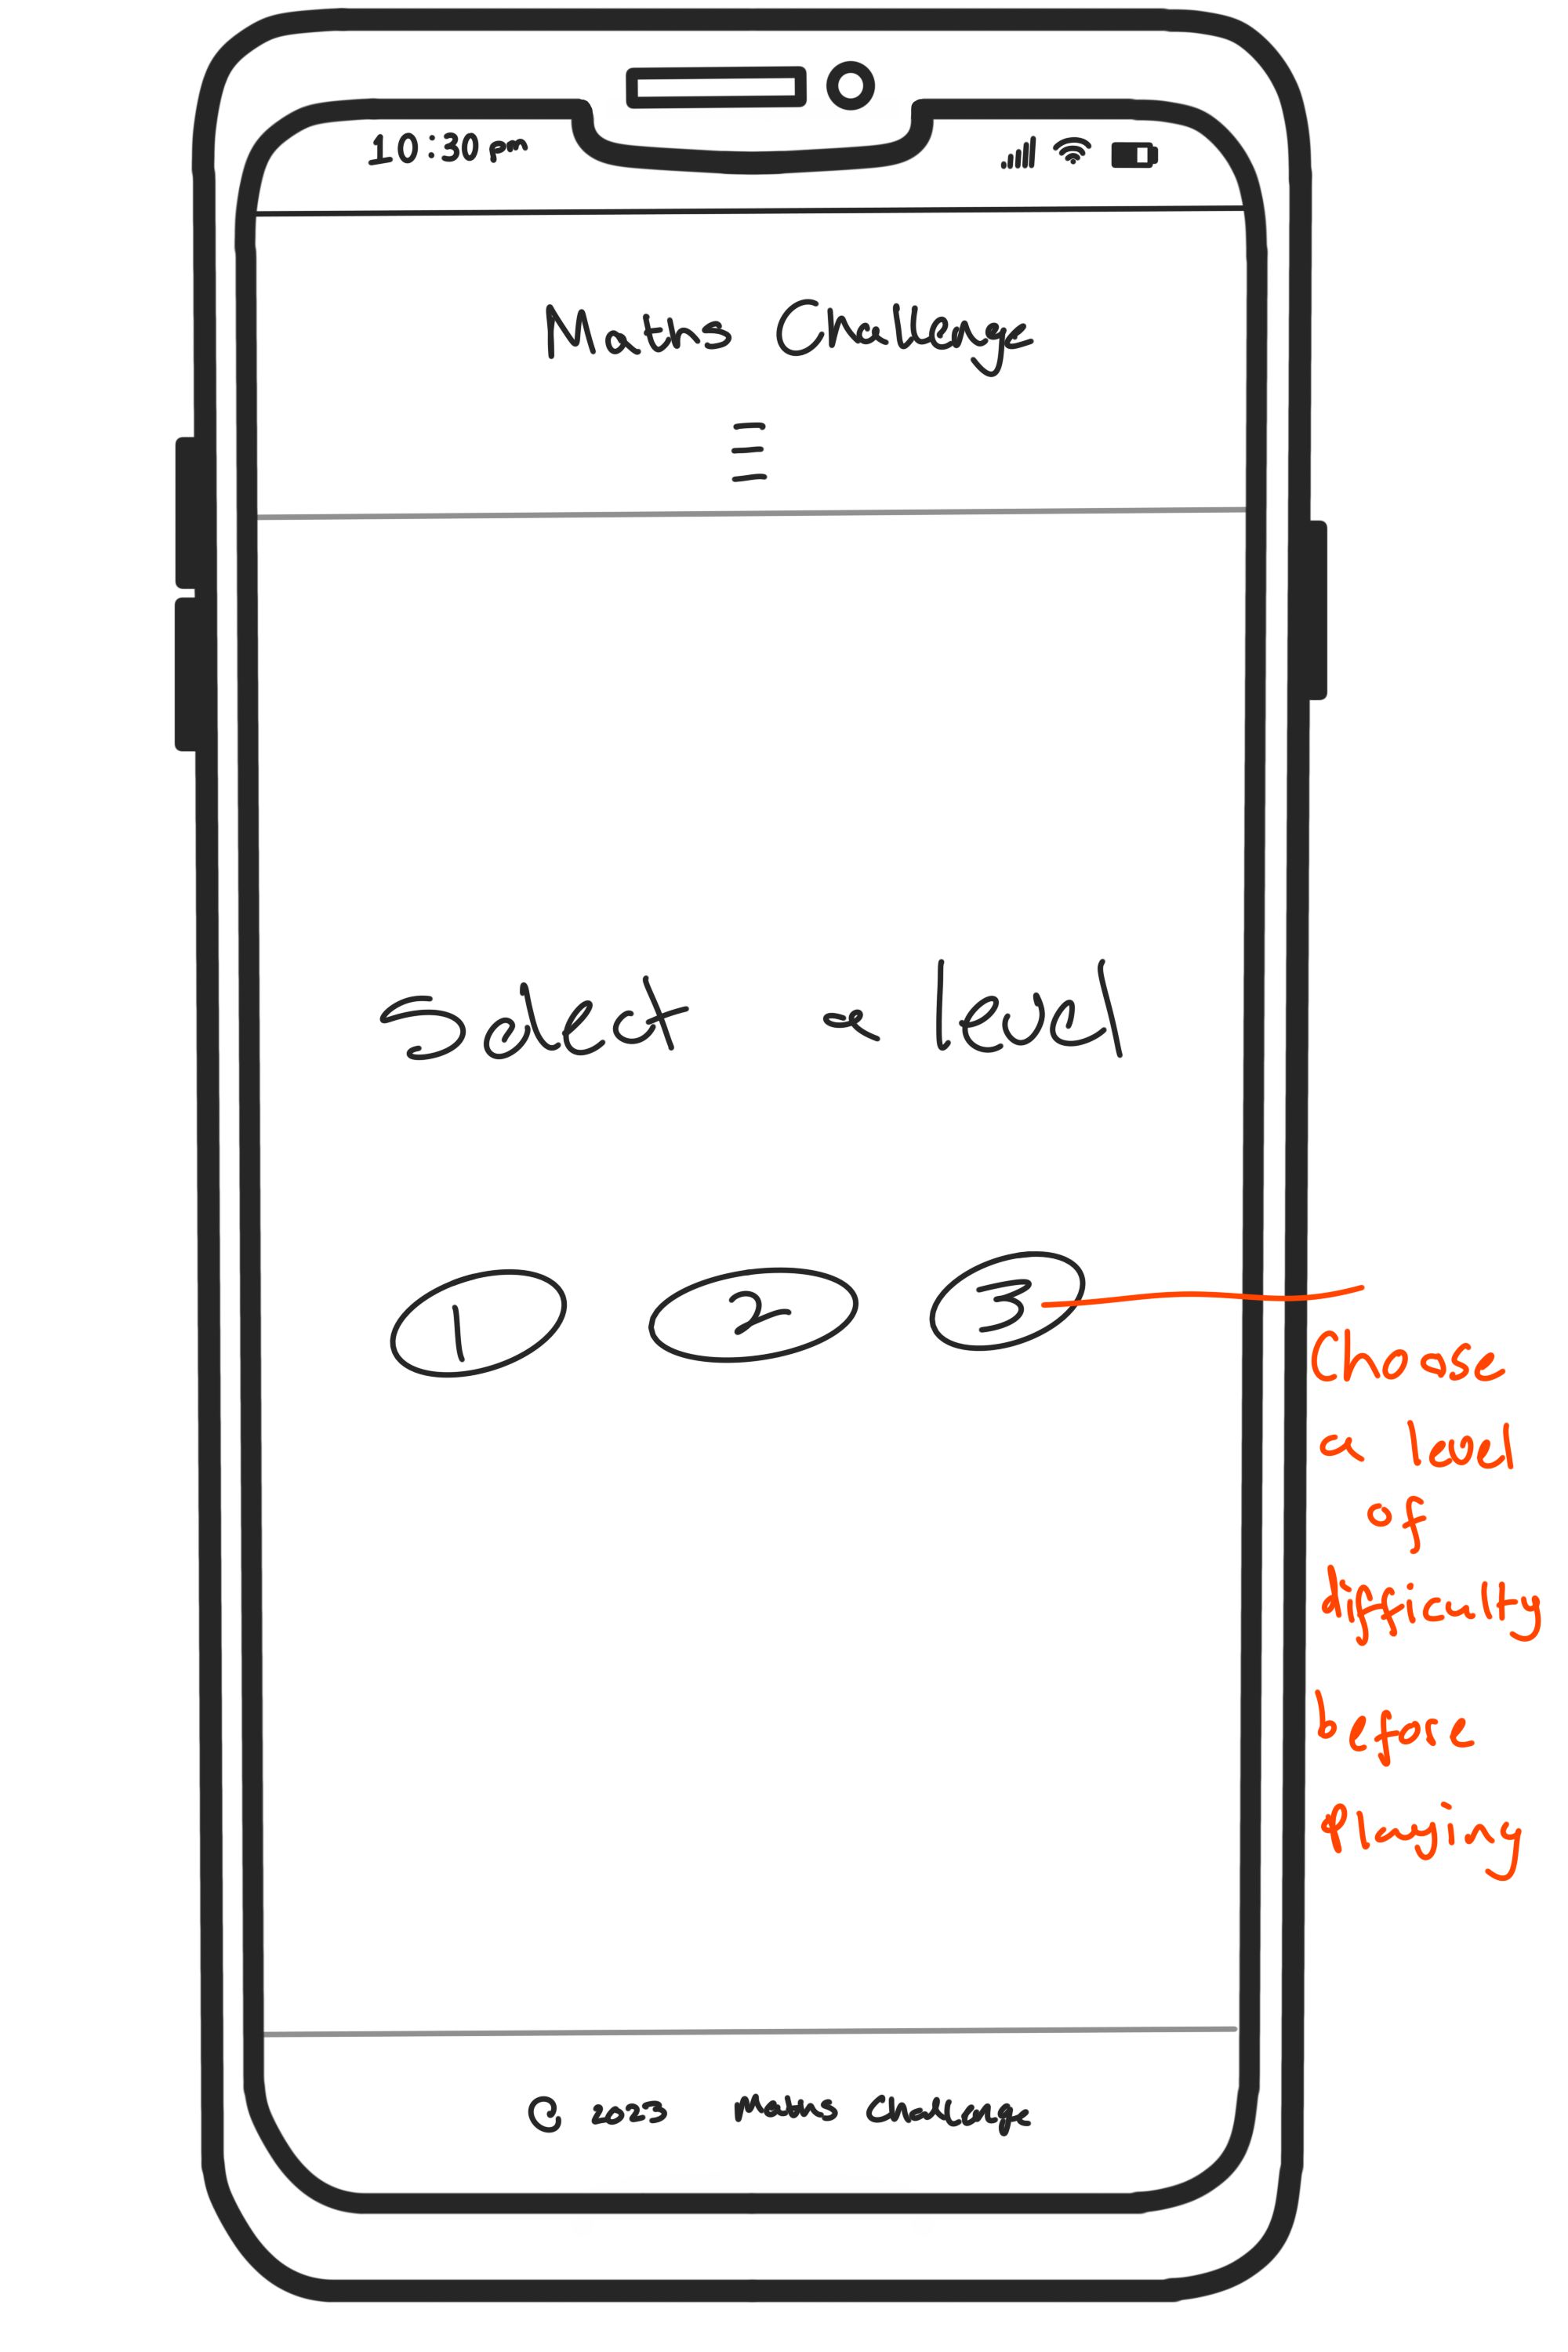 10:30 pm
Maths Challenge
Select a level
1 2 3
Choose
a level
of
difficulty
before
Playing
@ 2023 Maths Challenge